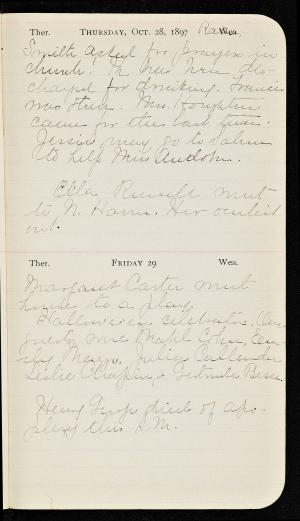 Ther. THURSDAY, OCT. 28, 1897 Wea.
Rain,
Smith asked for prayers in
church. He has been dis-
charged for drinking. Francis
was there. Mrs. Houghton
came for the last time.
Jessie may go to Salem
to help Miss
Ella Russell went
to N. Haven. Her oculist
out.
Ther. FRIDAY 29 Wea.
Margaret Carter went
home to a play.
Halloween celebration. Our
guests were Mabel Cohn, Em-
ily Meigs, Julia Callender
Leslie Chapin, & Gertrude Besse.
Henry George died of apo-
plexy this A.M.